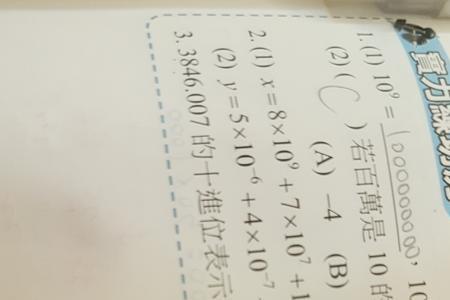 實力
1. (1) 10⁹ = 1000000000, 10
(2) ( C ) 若百萬是 10 的
(A) −4 (B)
2. (1) x = 8×10⁹ + 7×10⁷ + 1
(2) y = 5×10⁻⁶ + 4×10⁻⁷
3. 3846.007 的十進位表示